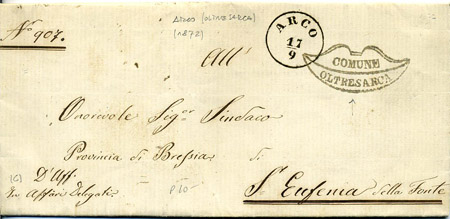 Nº 907.
ARCO (OLTRESARCA)
(1872)
ARCO
17
9
COMUNE
OLTRESARCA
All'
Onorevole Sigor Sindaco
Provincia di Bressia di
D'Uff:
In Affari Delegati.
St Eufemia della Fonte
(G)